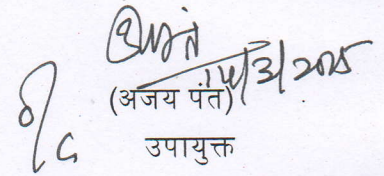 14/3/2025
(अजय पंत)
उपायुक्त